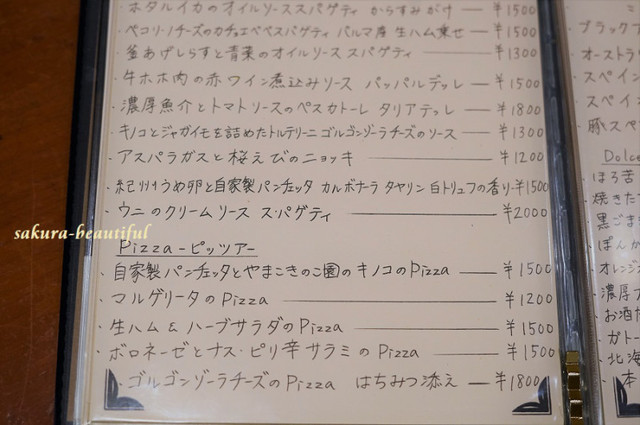 ホタルイカのオイルソーススパゲティ からすみがけ ー ¥1500
・ペコリーノチーズのカチョエペペスパゲティ パルマ産 生ハム乗せ ー ¥1500
・釜あげしらすと青菜のオイルソース スパゲティ ー ¥1300
・牛ホホ肉の赤ワイン煮込みソース パッパルデッレ ー ¥1500
・濃厚魚介とトマトソースのペスカトーレ タリアテッレ ー ¥1800
・キノコとジャガイモを詰めたトルテリーニ ゴルゴンゾーラチーズのソース ー ¥1300
・アスパラガスと桜えびのニョッキ ー ¥1200
・紀州うめ卵と自家製パンチェッタ カルボナーラ タヤリン 白トリュフの香り ー ¥1500
・ウニのクリームソース スパゲティ ー ¥2000
sakura-beautiful
Pizza ーピッツァー
・自家製パンチェッタとやまこきのこ園のキノコのPizza ー ¥1500
・マルゲリータのPizza ー ¥1200
・生ハム&ハーブサラダのPizza ー ¥1500
・ボロネーゼとナス・ピリ辛サラミのPizza ー ¥1500
・ゴルゴンゾーラチーズのPizza はちみつ添え ー ¥1800
・ブラックア
・オーストラ
・スペイン
・スペイ
・豚スペ
Dolce
・ほろ苦
・焼きた
黒ごま
・ぽんか
・オレンジ
・濃厚
・お酒た
・ガトー
・北海
本